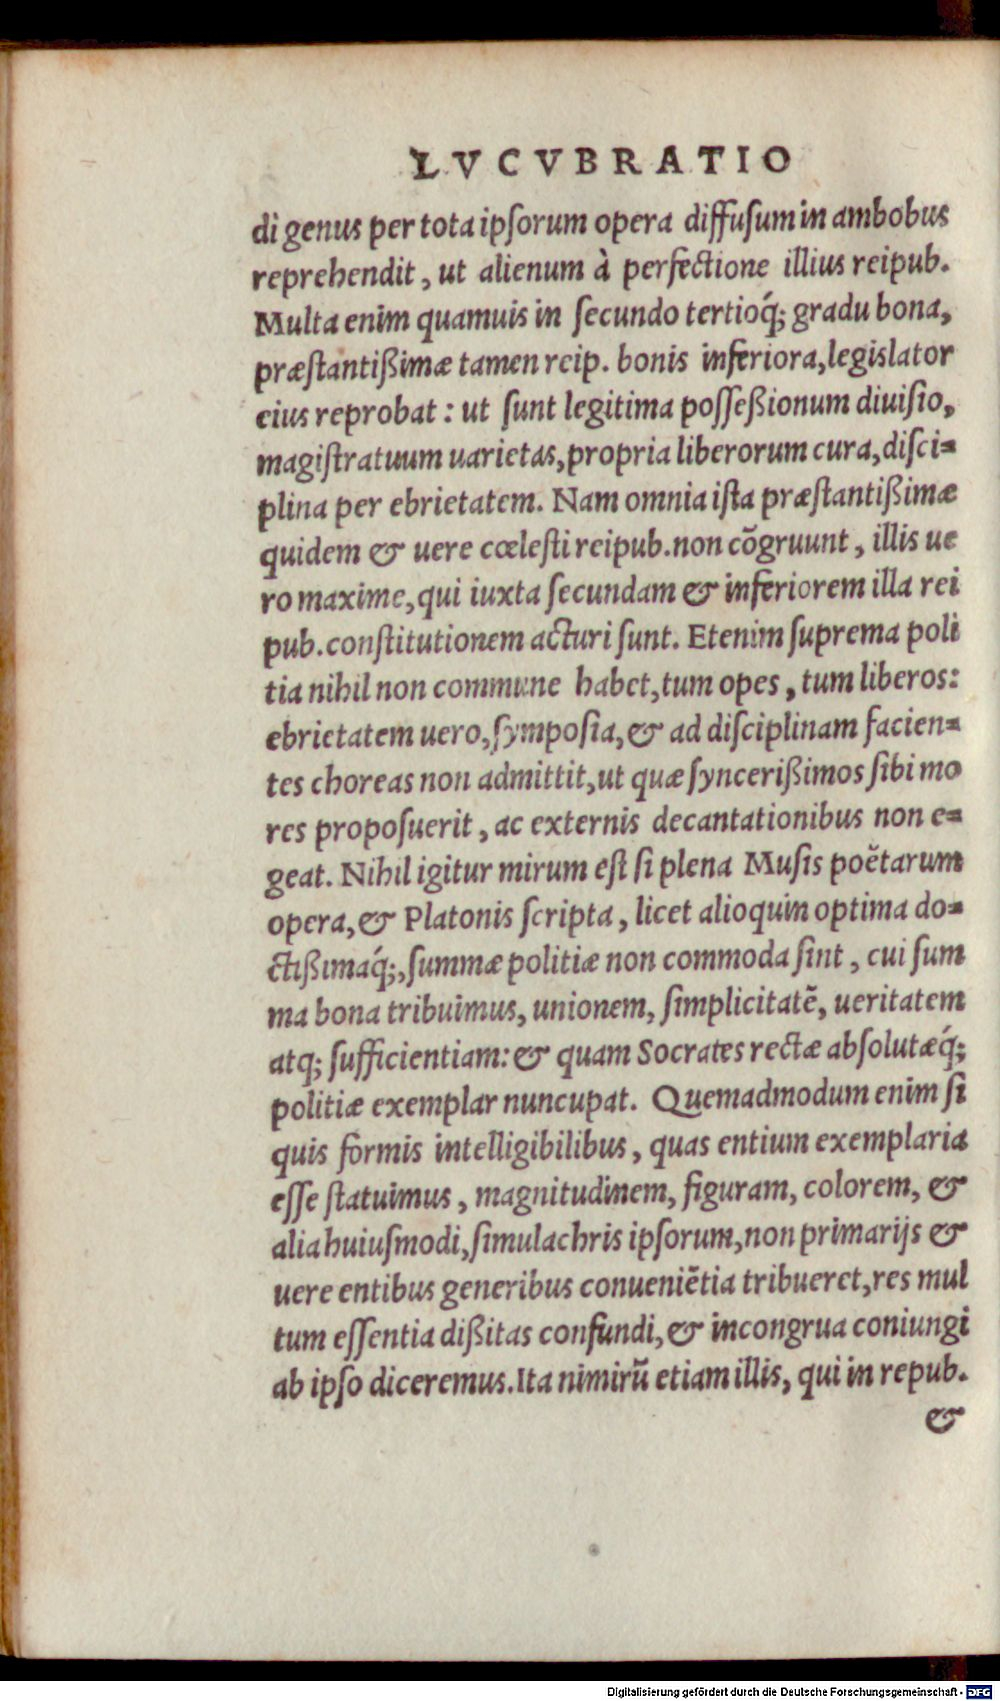 LVCVBRATIO
di genus per tota ipſorum opera diffuſum in ambobus
reprehendit, ut alienum à perfectione illius reipub.
Multa enim quamuis in ſecundo tertioq́; gradu bona,
præſtantißimæ tamen reip. bonis inferiora, legislator
eius reprobat: ut ſunt legitima poſſeßionum diuiſio,
magiſtratuum uarietas, propria liberorum cura, diſci=
plina per ebrietatem. Nam omnia iſta præſtantißimæ
quidem & uere cœleſti reipub. non cõgruunt, illis ue
ro maxime, qui iuxta ſecundam & inferiorem illa rei
pub. conſtitutionem acturi ſunt. Etenim ſuprema poli
tia nihil non commune habet, tum opes, tum liberos:
ebrietatem uero, ſympoſia, & ad diſciplinam facien=
tes choreas non admittit, ut quæ ſyncerißimos ſibi mo
res propoſuerit, ac externis decantationibus non e=
geat. Nihil igitur mirum eſt ſi plena Muſis poëtarum
opera, & Platonis ſcripta, licet alioquin optima do=
ctißimaq́;, ſummæ politiæ non commoda ſint, cui ſum
ma bona tribuimus, unionem, ſimplicitatẽ, ueritatem
atq; ſufficientiam: & quam Socrates rectæ abſolutæq́;
politiæ exemplar nuncupat. Quemadmodum enim ſi
quis formis intelligibilibus, quas entium exemplaria
eſſe ſtatuimus, magnitudinem, figuram, colorem, &
alia huiuſmodi, ſimulachris ipſorum, non primarijs &
uere entibus generibus conueniẽtia tribueret, res mul
tum eſſentia dißitas confundi, & incongrua coniungi
ab ipſo diceremus. Ita nimirũ etiam illis, qui in repub.
&
Digitalisierung gefördert durch die Deutsche Forschungsgemeinschaft - DFG